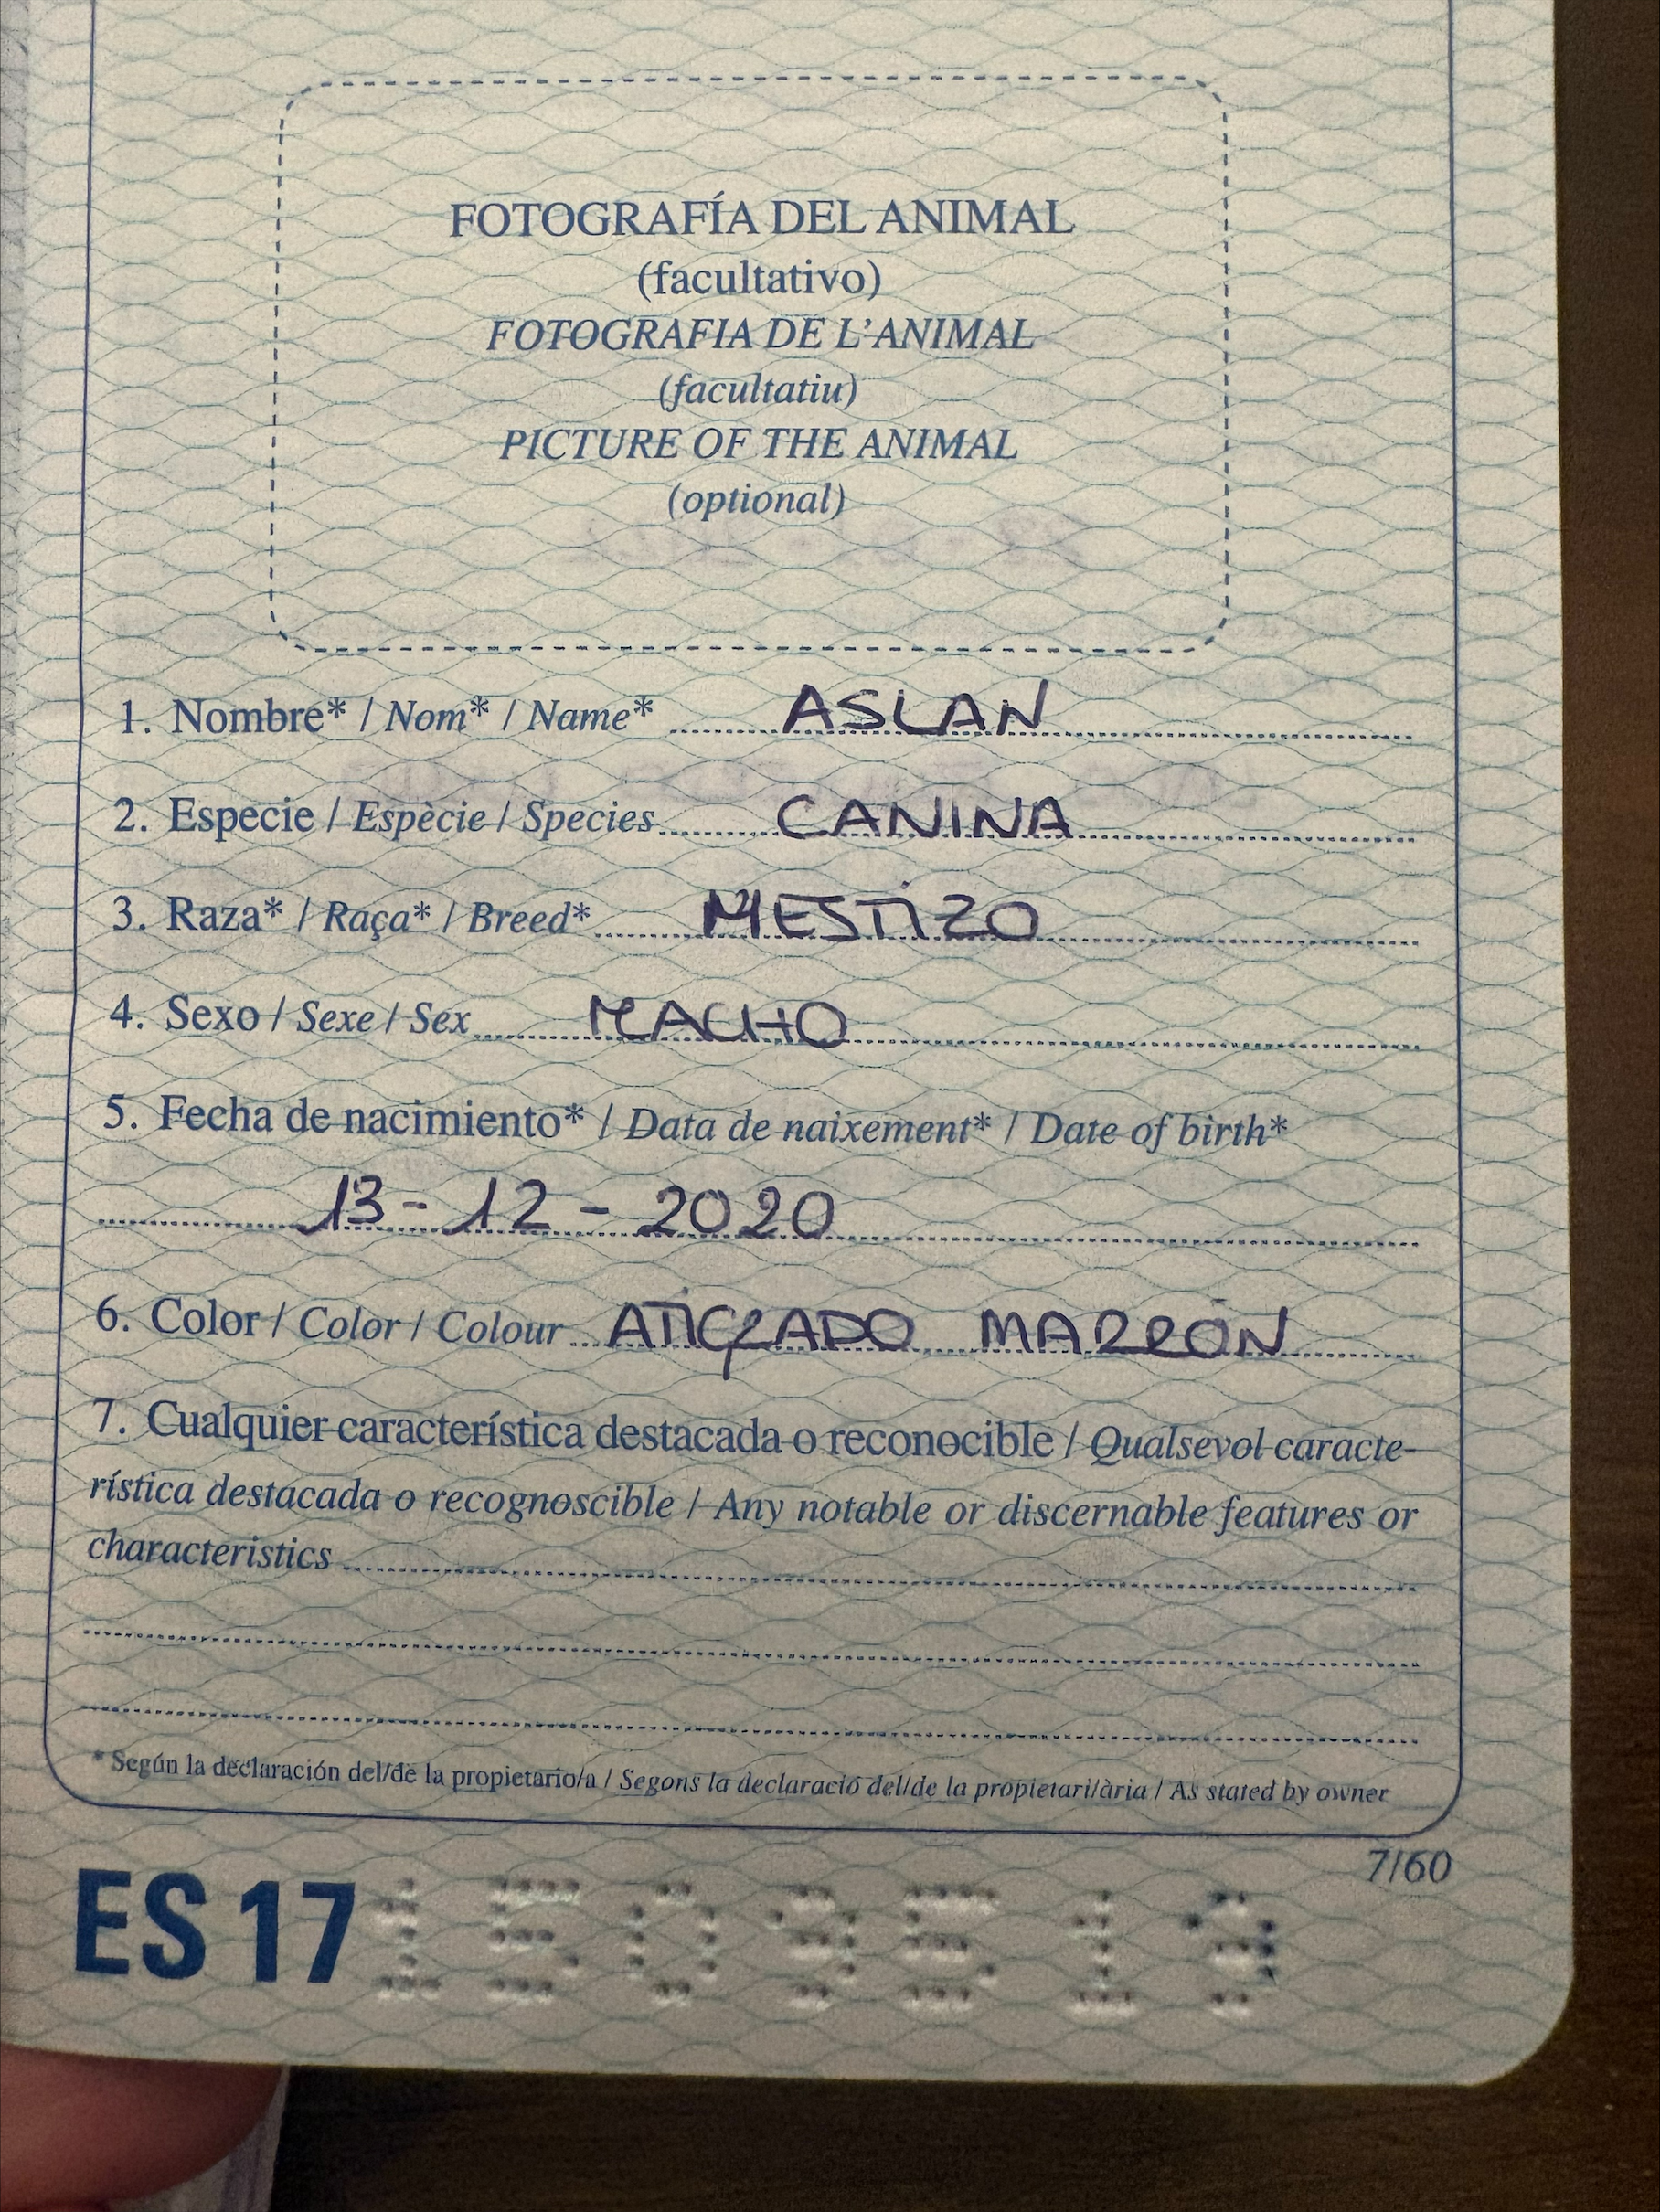 FOTOGRAFÍA DEL ANIMAL
(facultativo)
FOTOGRAFIA DE L'ANIMAL
(facultatiu)
PICTURE OF THE ANIMAL
(optional)
1. Nombre* / Nom* / Name* ASLAN
2. Especie / Espècie / Species CANINA
3. Raza* / Raça* / Breed* MESTIZO
4. Sexo / Sexe / Sex MACHO
5. Fecha de nacimiento* / Data de naixement* / Date of birth*
13-12-2020
6. Color / Color / Colour ATIGRADO MARRÓN
7. Cualquier característica destacada o reconocible / Qualsevol caracte-
rística destacada o recognoscible / Any notable or discernable features or
characteristics
* Según la declaración del/de la propietario/a / Segons la declaració del/de la propietari/ària / As stated by owner
7/60
ES 17